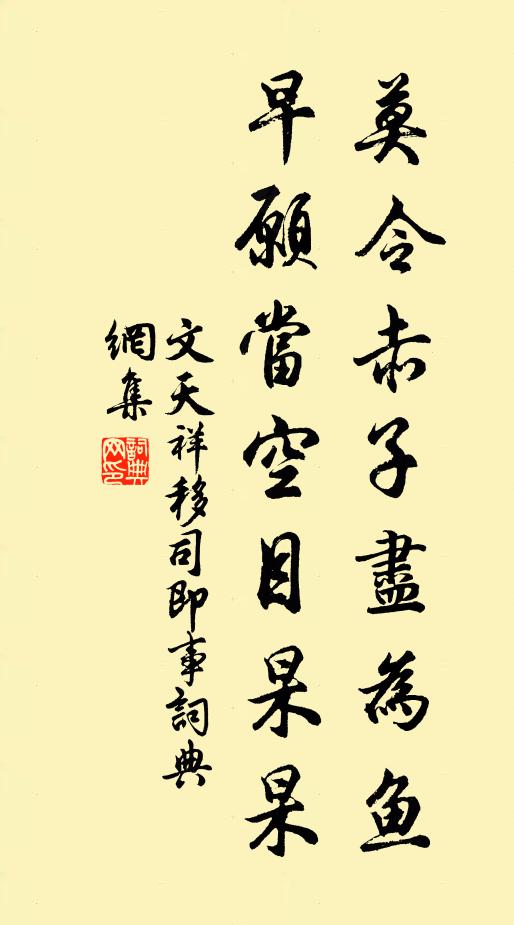 莫令赤子盡為魚
早願當空目杲杲
文天祥移司即事詞典
網集
詞典
网印